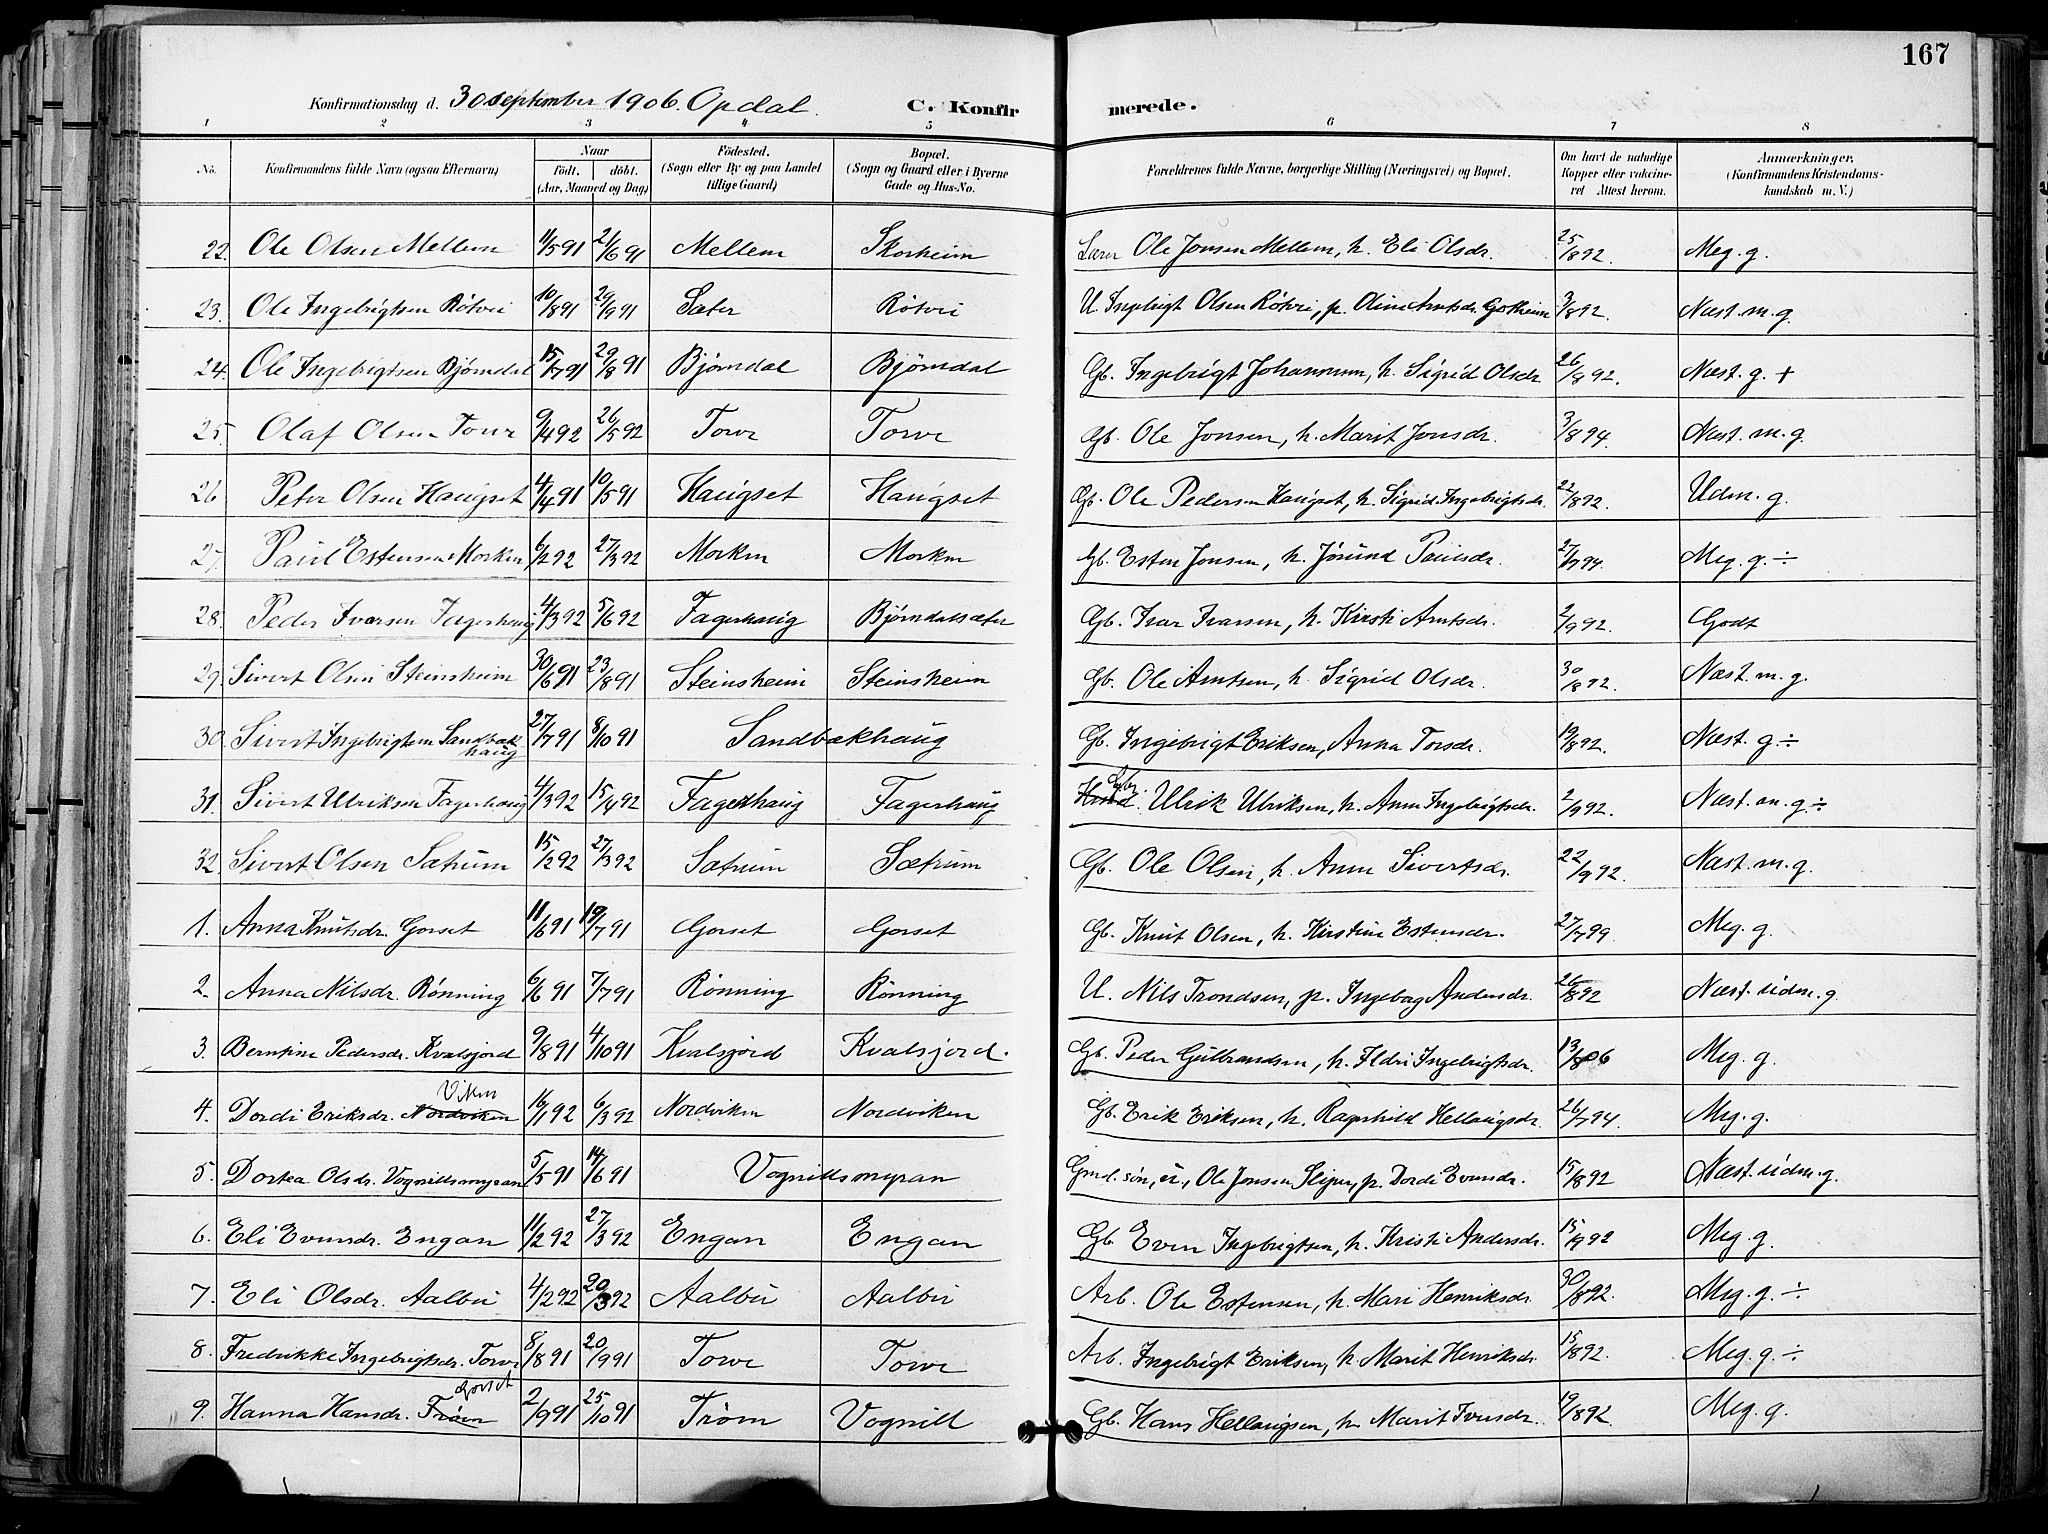 167
Konfirmationsdag d. 30 september 1906. Opdal. C. Konfirmerede.
1 2 3 4 5 6 7 8
No. Konfirmandens fulde Navn (ogsaa Efternavn) Naar födt. döbt. (Aar, Maaned og Dag) Födested. (Sogn eller By og paa Landet tillige Gaard) Bopæl. (Sogn og Gaard eller i Byerne Gade og Hus-No. Forældrenes fulde Navne, borgerlige Stilling (Næringsvei) og Bopæl. Om havt de naturlige Kopper eller vaccineret Attest herom. Anmærkninger, (Konfirmandens Kristendomskundskab m. V.)
22. Ole Olsen Mellem 11/5 91 21/6 91 Mellem Skorheim Lærer Ole Jonsen Mellem, h. Eli Olsdr. 25/8 92. Meg. g.
23. Ole Ingebrigtsen Rötvei 10/8 91 29/9 91 Sæter Rötvei U. Ingebrigt Olsen Rötvei, p. Oline Arntsdr. Gotheim 3/8 92. Næst. m. g.
24. Ole Ingebrigtsen Björndal 15/7 91 29/8 91 Björndal Björndal Gb. Ingebrigt Johannsen, h. Sigrid Olsdr. 26/8 92. Næst. g. +
25. Olaf Olsen Torve 9/4 92 26/5 92 Torve Torve Gb. Ole Jonsen, h. Marit Jonsdr. 3/8 94. Næst. m. g.
26 Peter Olsen Haugset 4/4 91 10/5 91 Haugset Haugset Gb. Ole Pedersen Haugset, h. Sigrid Ingebrigtsdr. 22/8 92. Udm. g.
27. Paul Estensen Morken 6/2 92 27/3 92 Morken Morken Gb. Esten Jonsen, h. Jörund Paulsdr. 27/7 94. Meg. g. ÷
28. Peder Ivarsen Fagerhaug 4/3 92 5/6 92 Fagerhaug Björndalsæter Gb. Ivar Ivarsen, h. Kirsti Arntsdr. 2/9 92. Godt
29. Sivert Olsen Steinsheim 30/6 91 23/8 91 Steinsheim Steinsheim Gb. Ole Arntsen, h. Sigrid Olsdr. 30/8 92. Næst. m. g.
30. Sivert Ingebrigtsen Sandbækhaug 27/7 91 8/10 91 Sandbækhaug Gb. Ingebrigt Eriksen, Anna Torsdr. 19/8 92. Næst. g. ÷
31. Sivert Ulriksen Fagerhaug 4/3 92 15/4 92 Fagerhaug Fagerhaug Ulrik Ulriksen, h. Anne Ingebrigtsdr. 2/9 92. Næst. m. g ÷
32. Sivert Olsen Sætrum 15/2 92 27/3 92 Sætrum Sætrum Gb. Ole Olsen, h. Anne Sivertsdr. 22/9 92. Næst. m. g.
1. Anna Knutsdr. Gorset 11/6 91 19/7 91 Gorset Gorset Gb. Knut Olsen, h. Kirstine Estensdr. 27/7 99. Meg. g.
2. Anna Nilsdr. Rönning 6/6 91 7/7 91 Rönning Rönning U. Nils Trondsen, p. Ingeborg Andersdr. 26/8 92 Næst. udm. g.
3. Berntine Pedersdr. Kvalsjord 9/8 91 4/10 91 Kvalsjord Kvalsjord. Gb. Peder Gulbrandsen, h. Ildri Ingebrigtsdr. 13/8 06 Meg. g.
Viken
4. Dordi Eriksdr. Nordviken 16/1 92 6/3 92 Nordviken Nordviken Gb. Erik Eriksen, h. Ragnhild Hellaugsdr. 26/7 94. Meg. g.
5. Dortea Olsdr. Vognillsmyran 5/5 91 14/6 91 Vognillsmyran Gmd. sön, u., Ole Jonsen Sliper, p. Dordi Evensdr. 15/8 92 Næst. udm. g.
6. Eli Evensdr. Engan 11/2 92 27/3 92 Engan Engan Gb. Even Ingebrigtsen, h. Kristi Andersdr. 15/9 92 Meg. g.
7. Eli Olsdr. Aalbu 4/2 92 20/3 92 Aalbu Aalbu Arb. Ole Estensen, h. Mari Henriksdr. 30/8 92. Meg. g. ÷
8. Fredrikke Ingebrigtsdr. Torve 8/8 91 20/9 91 Torve Torve Arb. Ingebrigt Eriksen, h. Marit Henriksdr. 15/8 92. Meg. g. ÷
Gorset
9. Hanna Hansdr. Tröm 2/9 91 25/10 91 Tröm Vognill Gb. Hans Hellaugsen, h. Marit Iversdr. 19/8 92. Meg. g.